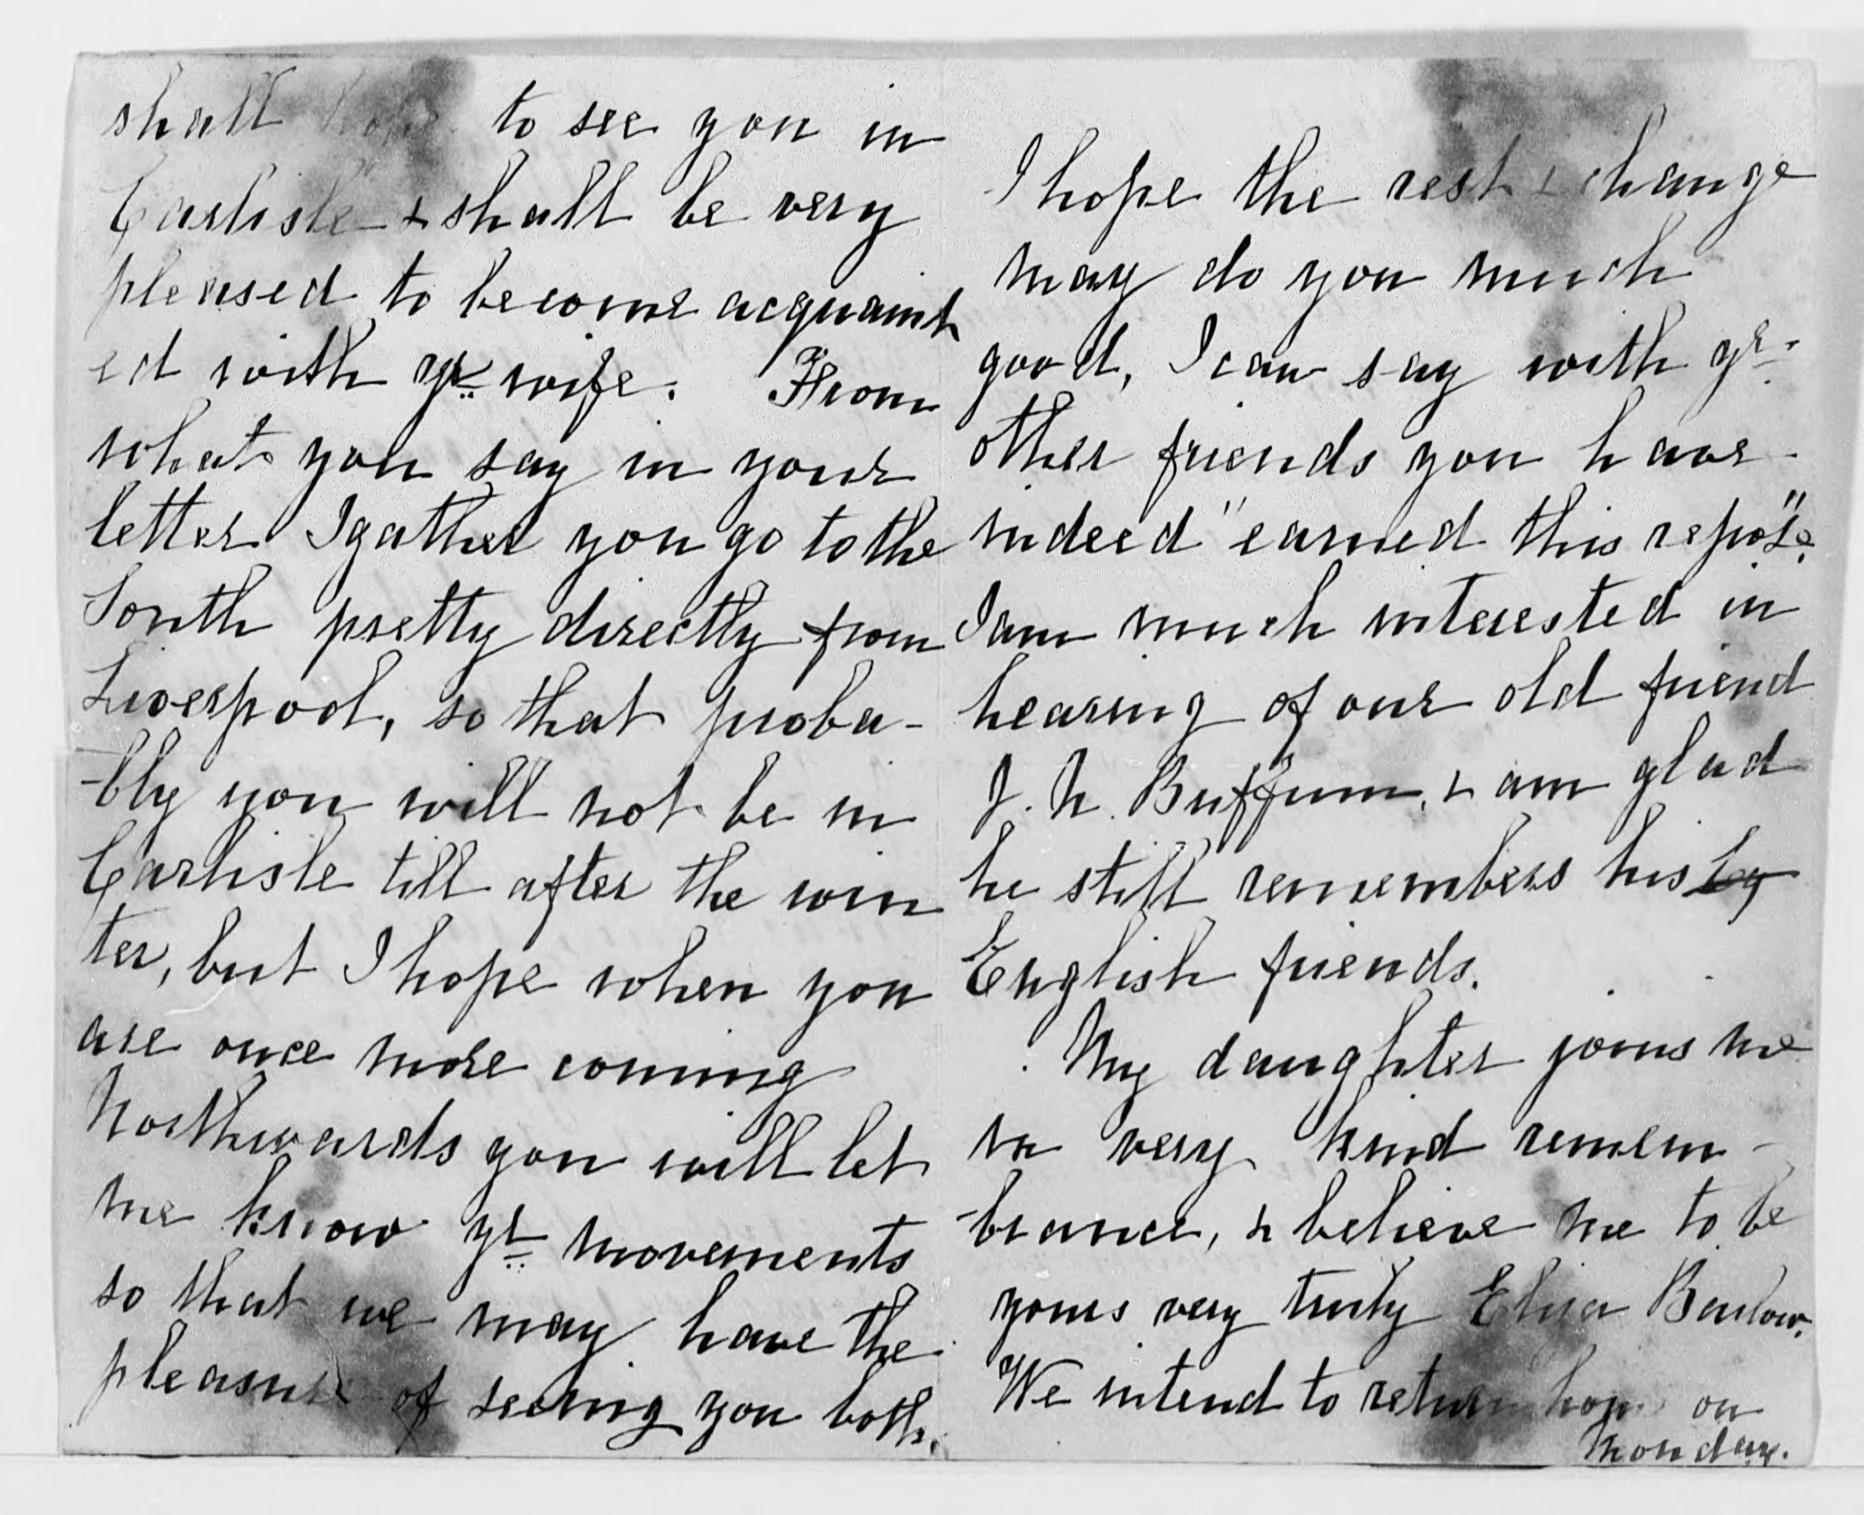 shall hope to see you in
Carlisle & shall be very
pleased to become acquaint
ed with yr wife. From
what you say in your
letter I gather you go to the
South pretty directly from
Liverpool, so that proba-
-bly you will not be in
Carlisle till after the win
ter, but I hope when you
are once more coming
Northwards you will let
me know yr movements
so that we may have the
pleasure of seeing you both.
I hope the rest & change
may do you much
good, I can say with yr
other friends you have
indeed "earned this repose".
I am much interested in
hearing of our old friend
J. N. Buffum, & am glad
he still remembers his
English friends.
My daughter joins me
in very kind remem-
-brance, & believe me to be
yours very truly Eliza Barlow.
We intend to return home on
Monday.